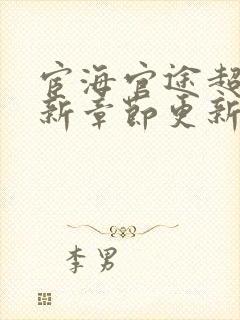 宦海官途超
新章节更新
李男